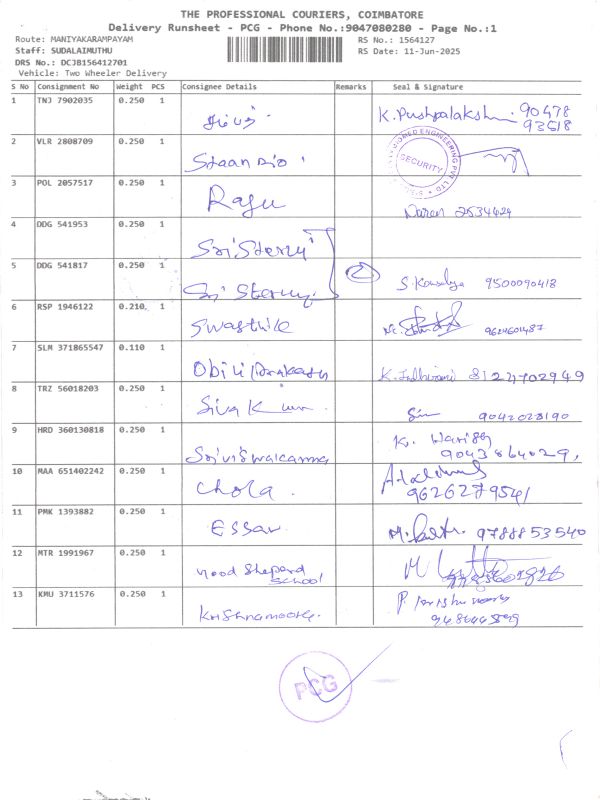 THE PROFESSIONAL COURIERS, COIMBATORE
Delivery Runsheet - PCG - Phone No.:9047080280 - Page No.:1
Route: MANIYAKARAMPAYAM RS No.: 1564127
Staff: SUDALAIMUTHU RS Date: 11-Jun-2025
DRS No.: DCJB156412701
Vehicle: Two Wheeler Delivery
S No Consignment No Weight PCS Consignee Details Remarks Seal & Signature
1 TNJ 7902035 0.250 1 K. Pushpalakshmi 90478
93518
2 VLR 2808709 0.250 1 SECURITY
3 POL 2057517 0.250 1 Ragu 2534424
4 DDG 541953 0.250 1 Sri Sterny
5 DDG 541817 0.250 1 Sri Sterny 2 S. Kousalya 9500090418
6 RSP 1946122 0.210 1 Swasthik 9624601487
7 SLM 371865547 0.110 1 8124702949
8 TRZ 56018203 0.250 1 Siva Kumar 9042028190
9 HRD 360130818 0.250 1 Sriviswakarma K. Harish
9043864029,
10 MAA 651402242 0.250 1 Chola
9626279541
11 PMK 1393882 0.250 1 Essar 9788853540
12 MTR 1991967 0.250 1 Good Sheperd
School
13 KMU 3711576 0.250 1 Krishnamoorthy. P.
PCG